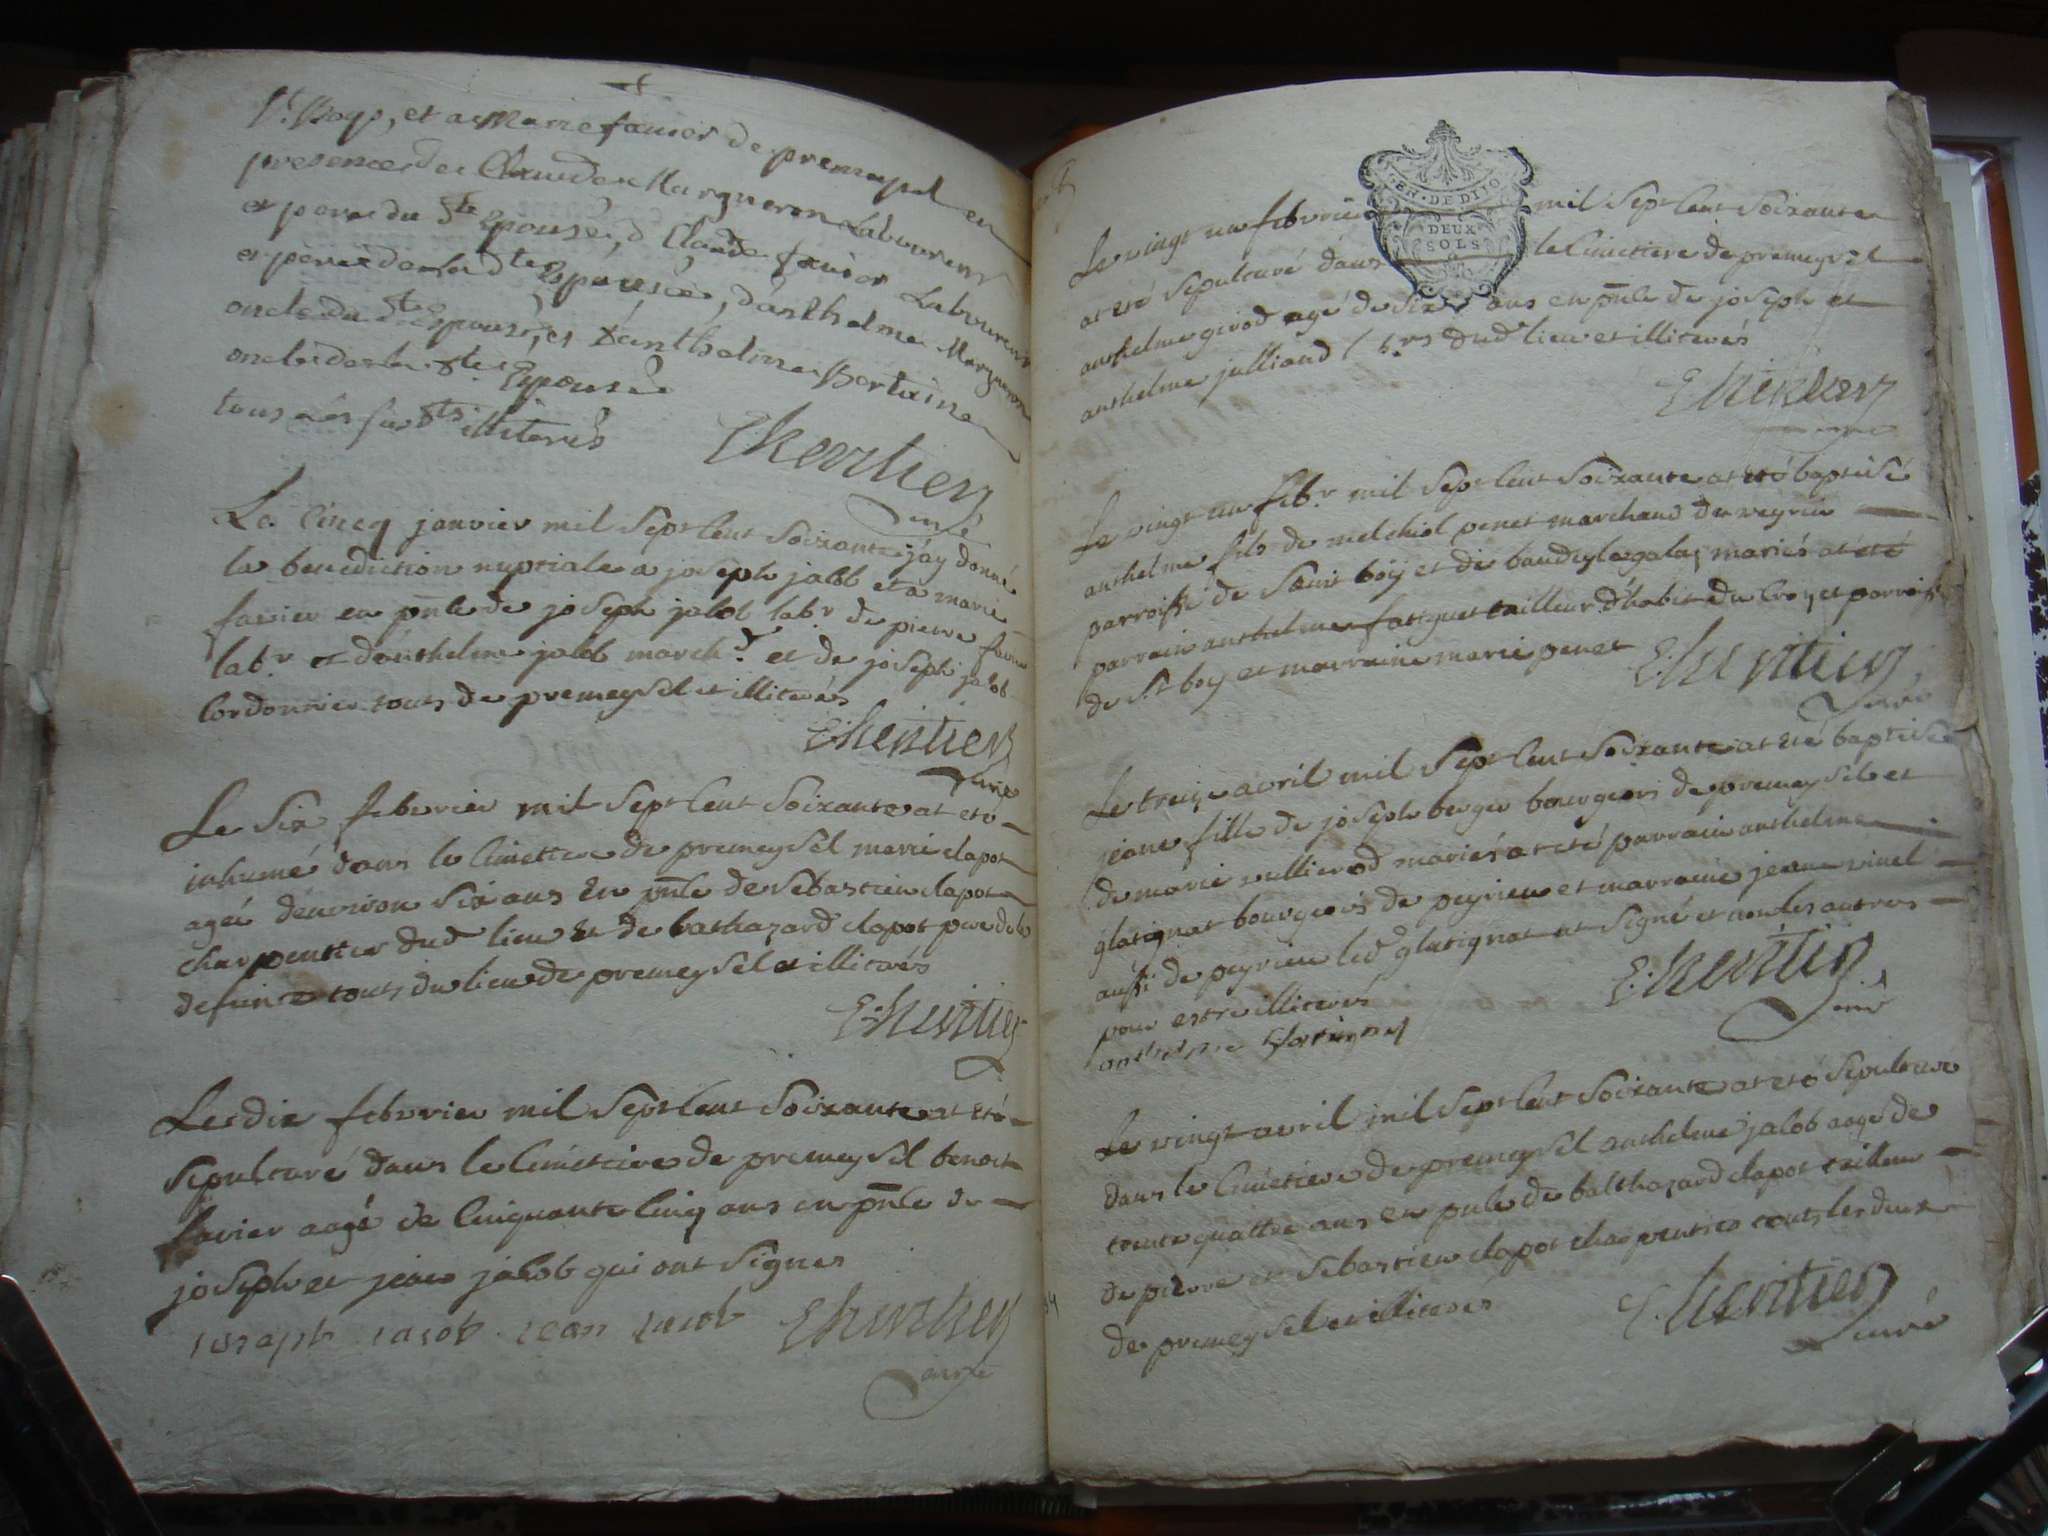 St. Boys, et a Marie favier de premeysel en
presence de Claude Margueron Laboureur
et pere du dt Epousé, d Claude favier Laboureur
et pere de la dte Epousée, d'anthelme Margueron
oncle du dt Epousé, et d'anthelme Bertain
oncle de la dte Epousée
tous les susdts illiterés
EHeritier
curé
Le cincq janvier mil sept cent soixante j'ay donné
la benediction nuptiale a joseph jabob et a marie
favier en pnle de joseph jabob labr de pierre favier
labr et d'anthelme jabob marchd et de joseph jacob
cordonnier touts de premeysel et illiterés
E:heritier
curé
Le six febvrier mil sept cent soixante at eté
inhumé dans le cimettiere de premeysel marie clapot
agée d'environ six ans en pnle de sebastien clapot
charpentier dud lieu et de bathazard clapot pere de la
defunte touts du lieu de premeysel et illiterés
E:heritier
Le dix febvrier mil sept cent soixante at eté
sepulturé dans le cimetiere de premeysel benoit
favier aagé de cinquante cinq ans en pnle de
joseph et jean jacob qui ont signés
ioseph iacob iean iacob EHeritier
curé
GEN. DE DIJO
DEUX
SOLS
Le vingt un febvrier mil sept cent soixante
at eté sepulturé dans le cimetiere de premeysel
anthelme girod agé de six ans en pnle de joseph et
anthelme julliand dud lieu et illiterés
EHeritier
curé
Le vingt un febr mil sept cent soixante at eté baptisé
anthelme fils de melchiol penet marchand de veyrin
parroisse de saint boij et de baudeylagalas mariés at eté
parrain anthelme fatiguet tailleur d'habit du croy et parroisse
de St boij et marraine marie penet
E:heritier
curé
Le treize avril mil sept cent soixante at eté baptisée
jeane fille de joseph berger bourgeois de premeysel et
de marie vullierod mariés at eté parrain anthelme
glatignat bourgeois de peyrieu et marraine jeane vinel
aussi de peyrieu led glatignat at signé et non les autres
pour estre illiterés
E:heritier
curé
anthelme Glatignat
Le vingt avril mil sept cent soixante at eté sepulturé
dans le cimetiere de premeysel anthelme jabob aagé de
trente quattre ans en pnle de balthazard clapot tailleur
de pierre et sebastien clapot charpentier touts les deux
de premeysel et illiterés
E:heritier
curé